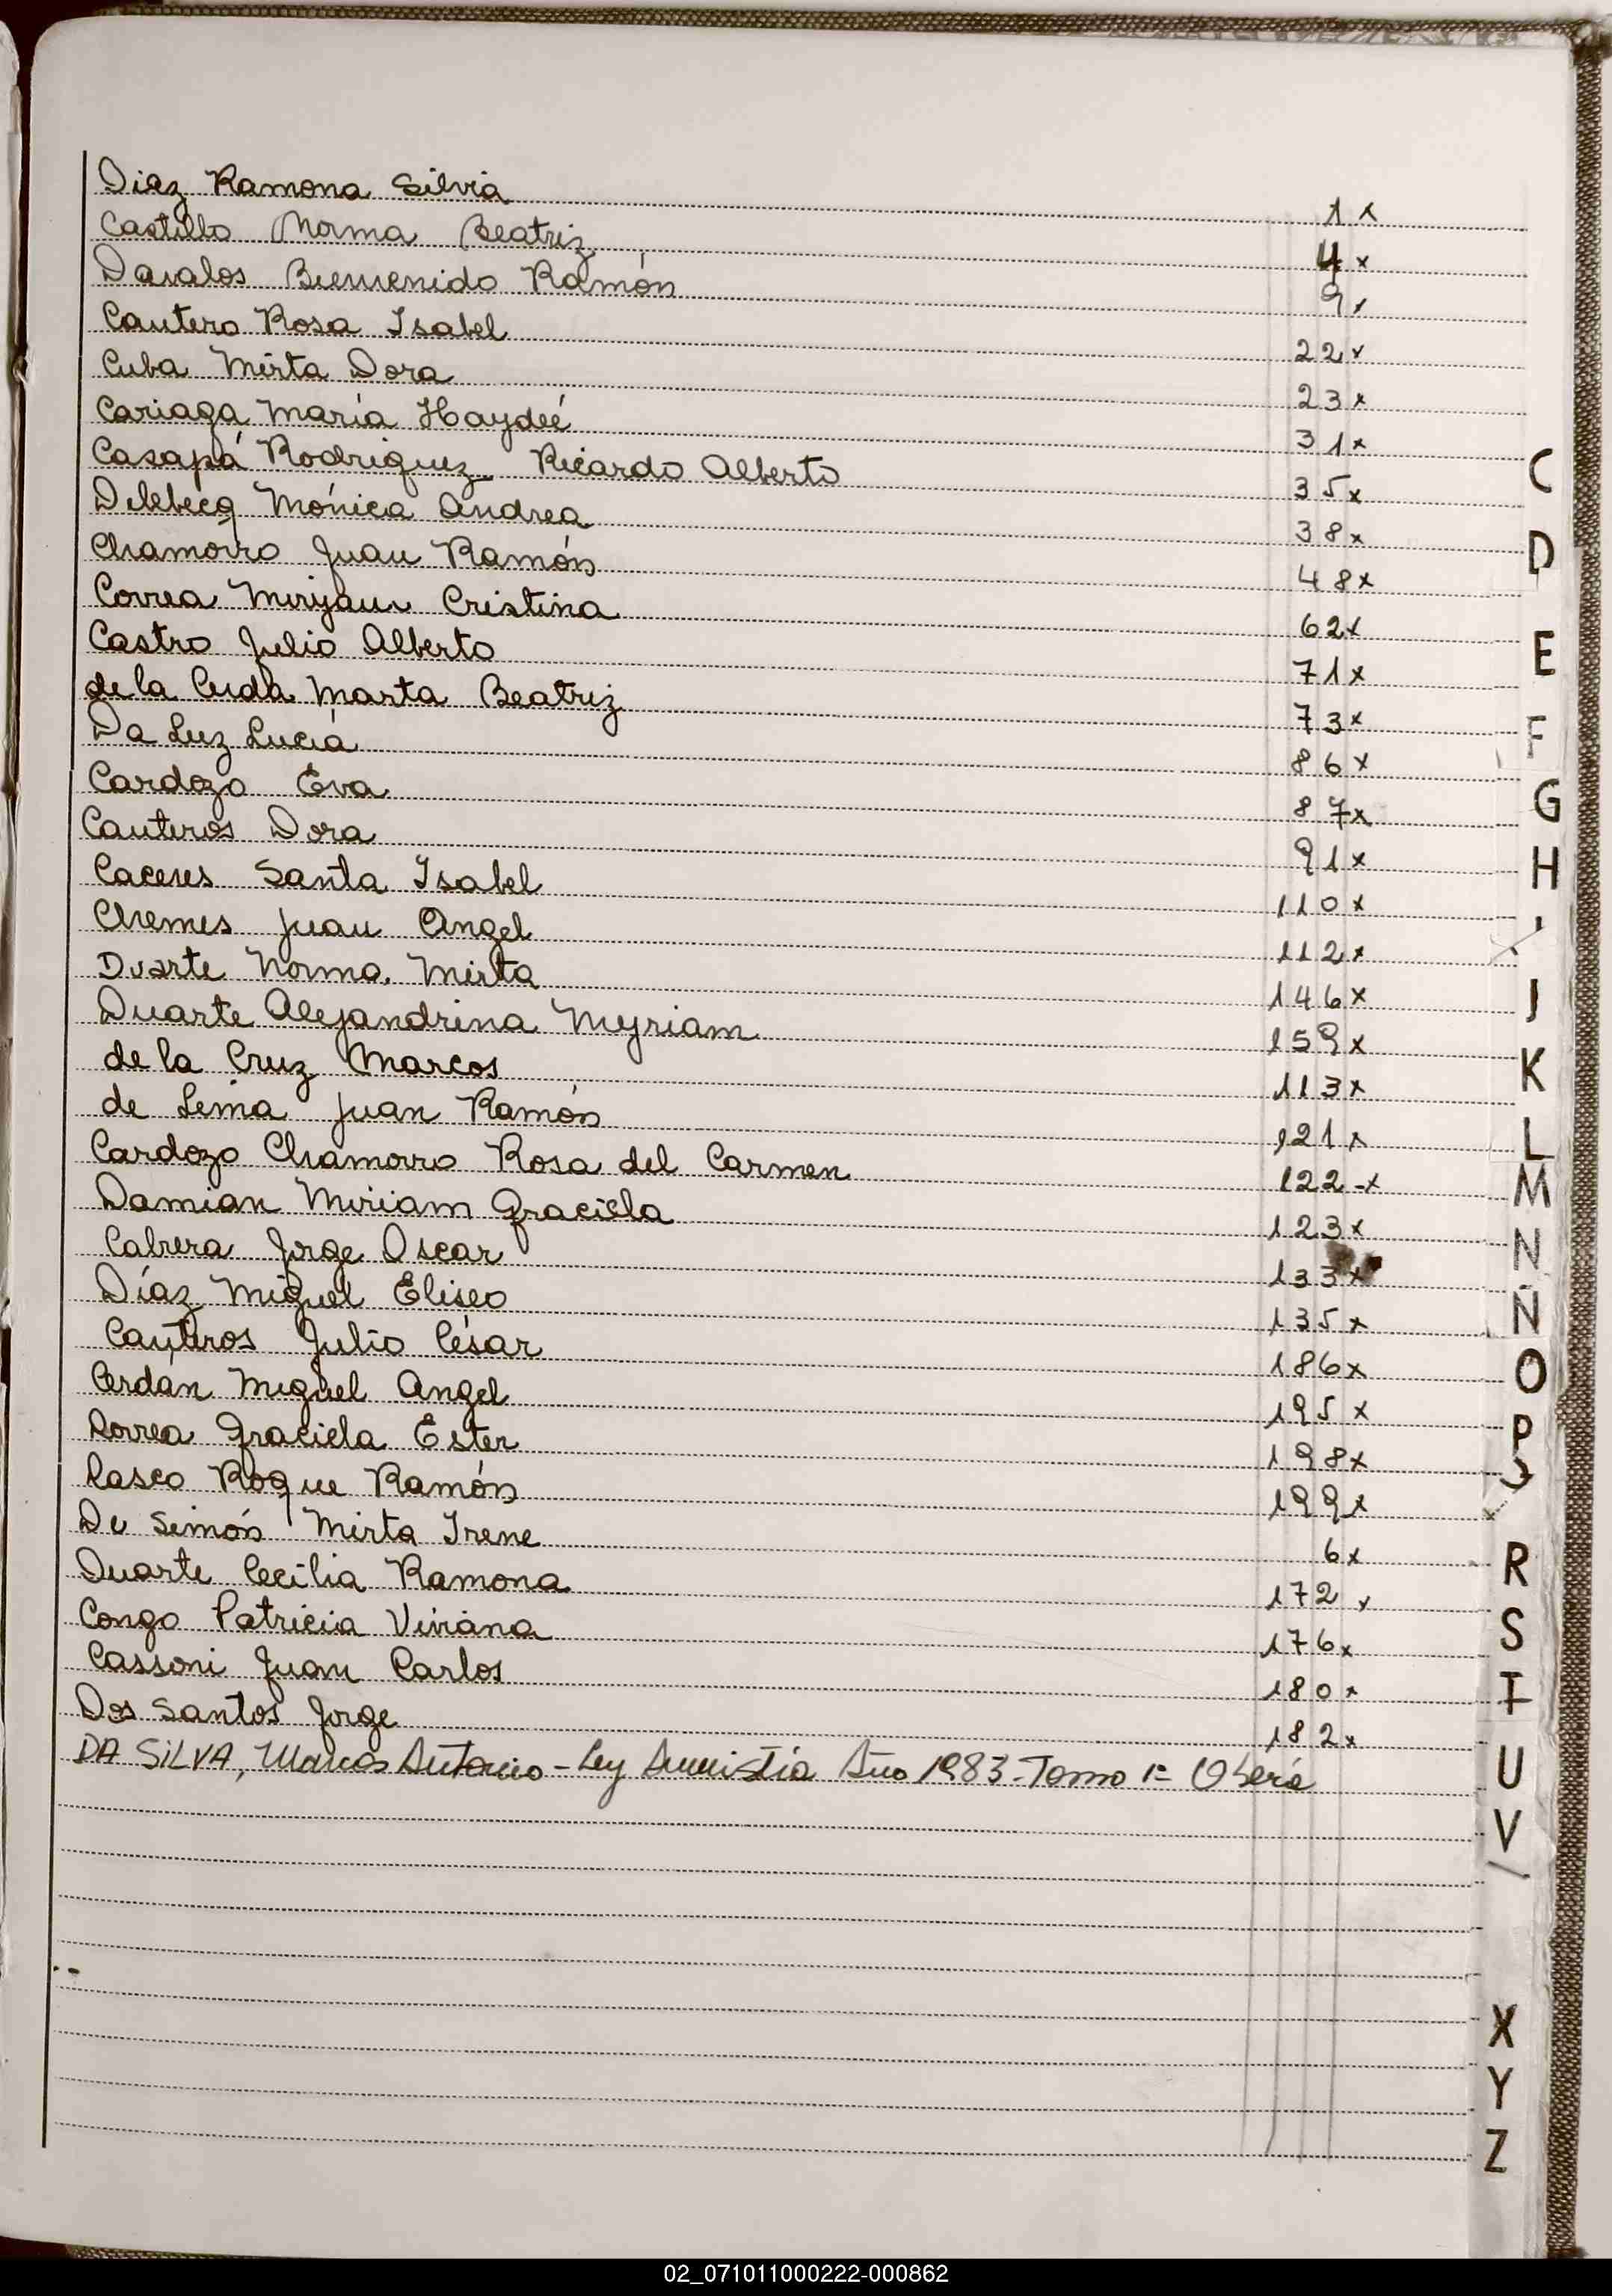 Diaz Ramona Silvia 1 x
Castillo Norma Beatriz 4 x
Davalos Bienvenido Ramón 9 x
Cantero Rosa Isabel 22 x
Cuba Mirta Dora 23 x
Cariaga María Haydeé 31 x
Casapá Rodriguez Ricardo Alberto 35 x
Delebecq Mónica Andrea 38 x
Chamorro Juan Ramón 48 x
Correa Miryam Cristina 62 x
Castro Julio Alberto 71 x
de la Marta Beatriz 73 x
Da Luz Lucia 86 x
Cardozo Eva 87 x
Canteros Dora 91 x
Caceres Santa Isabel 110 x
Chemes Juan Angel 112 x
Duarte Norma Mirta 146 x
Duarte Alejandrina Myriam 159 x
de la Cruz Marcos 113 x
de Lima Juan Ramón 121 x
Cardozo Chamorro Rosa del Carmen 122 - x
Damian Miriam Graciela 123 x
Cabrera Jorge Oscar 133 x
Díaz Miguel Eliseo 135 x
Canteros Julio César 186 x
Cerdán Miguel Angel 195 x
Correa Graciela Ester 198 x
Casco Roque Ramón 199 x
De Simón Mirta Irene 6 x
Duarte Cecilia Ramona 172 x
Congo Patricia Viviana 176 x
Cassoni Juan Carlos 180 x
Dos Santos Jorge 182 x
DA SILVA, Marcos Antonio - Ley Amnistía Año 1983 - Tomo 1º Oberá
C
D
E
F
G
H
I
J
K
L
M
N
Ñ
O
P
R
S
T
U
V
X
Y
Z
02_071011000222-000862